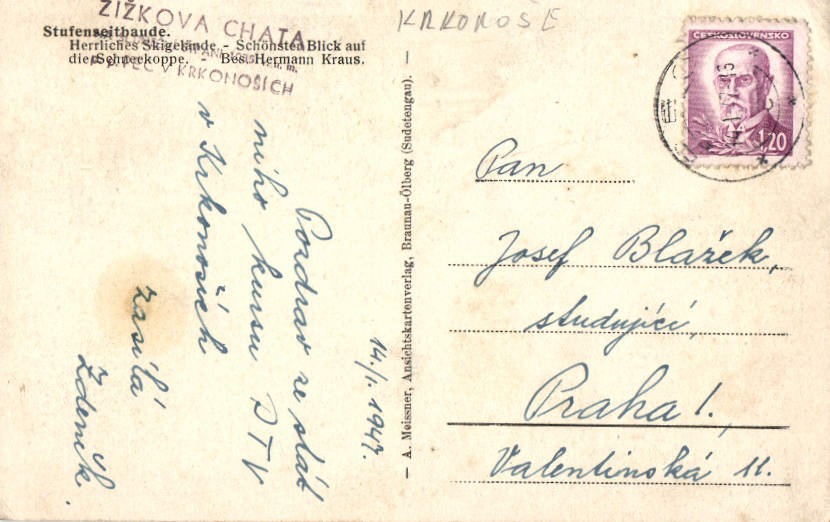 KRKONOŠE
ŽIŽKOVA CHATA
PEC V KRKONOŠÍCH
Stufenseitbaude.
Herrliches Skigelände - Schönster Blick auf
die Schneekoppe. - Bes. Hermann Kraus.
14./I. 1947.
Pozdrav ze stát
ního kursu DTV
v Krkonoších
zasílá
Zdeněk.
— A. Meissner, Ansichtskartenverlag, Braunau-Ölberg (Sudetengau). —
ČESKOSLOVENSKO
1,20
Pan
Josef Blažek,
studující,
Praha I.,
Valentinská 11.